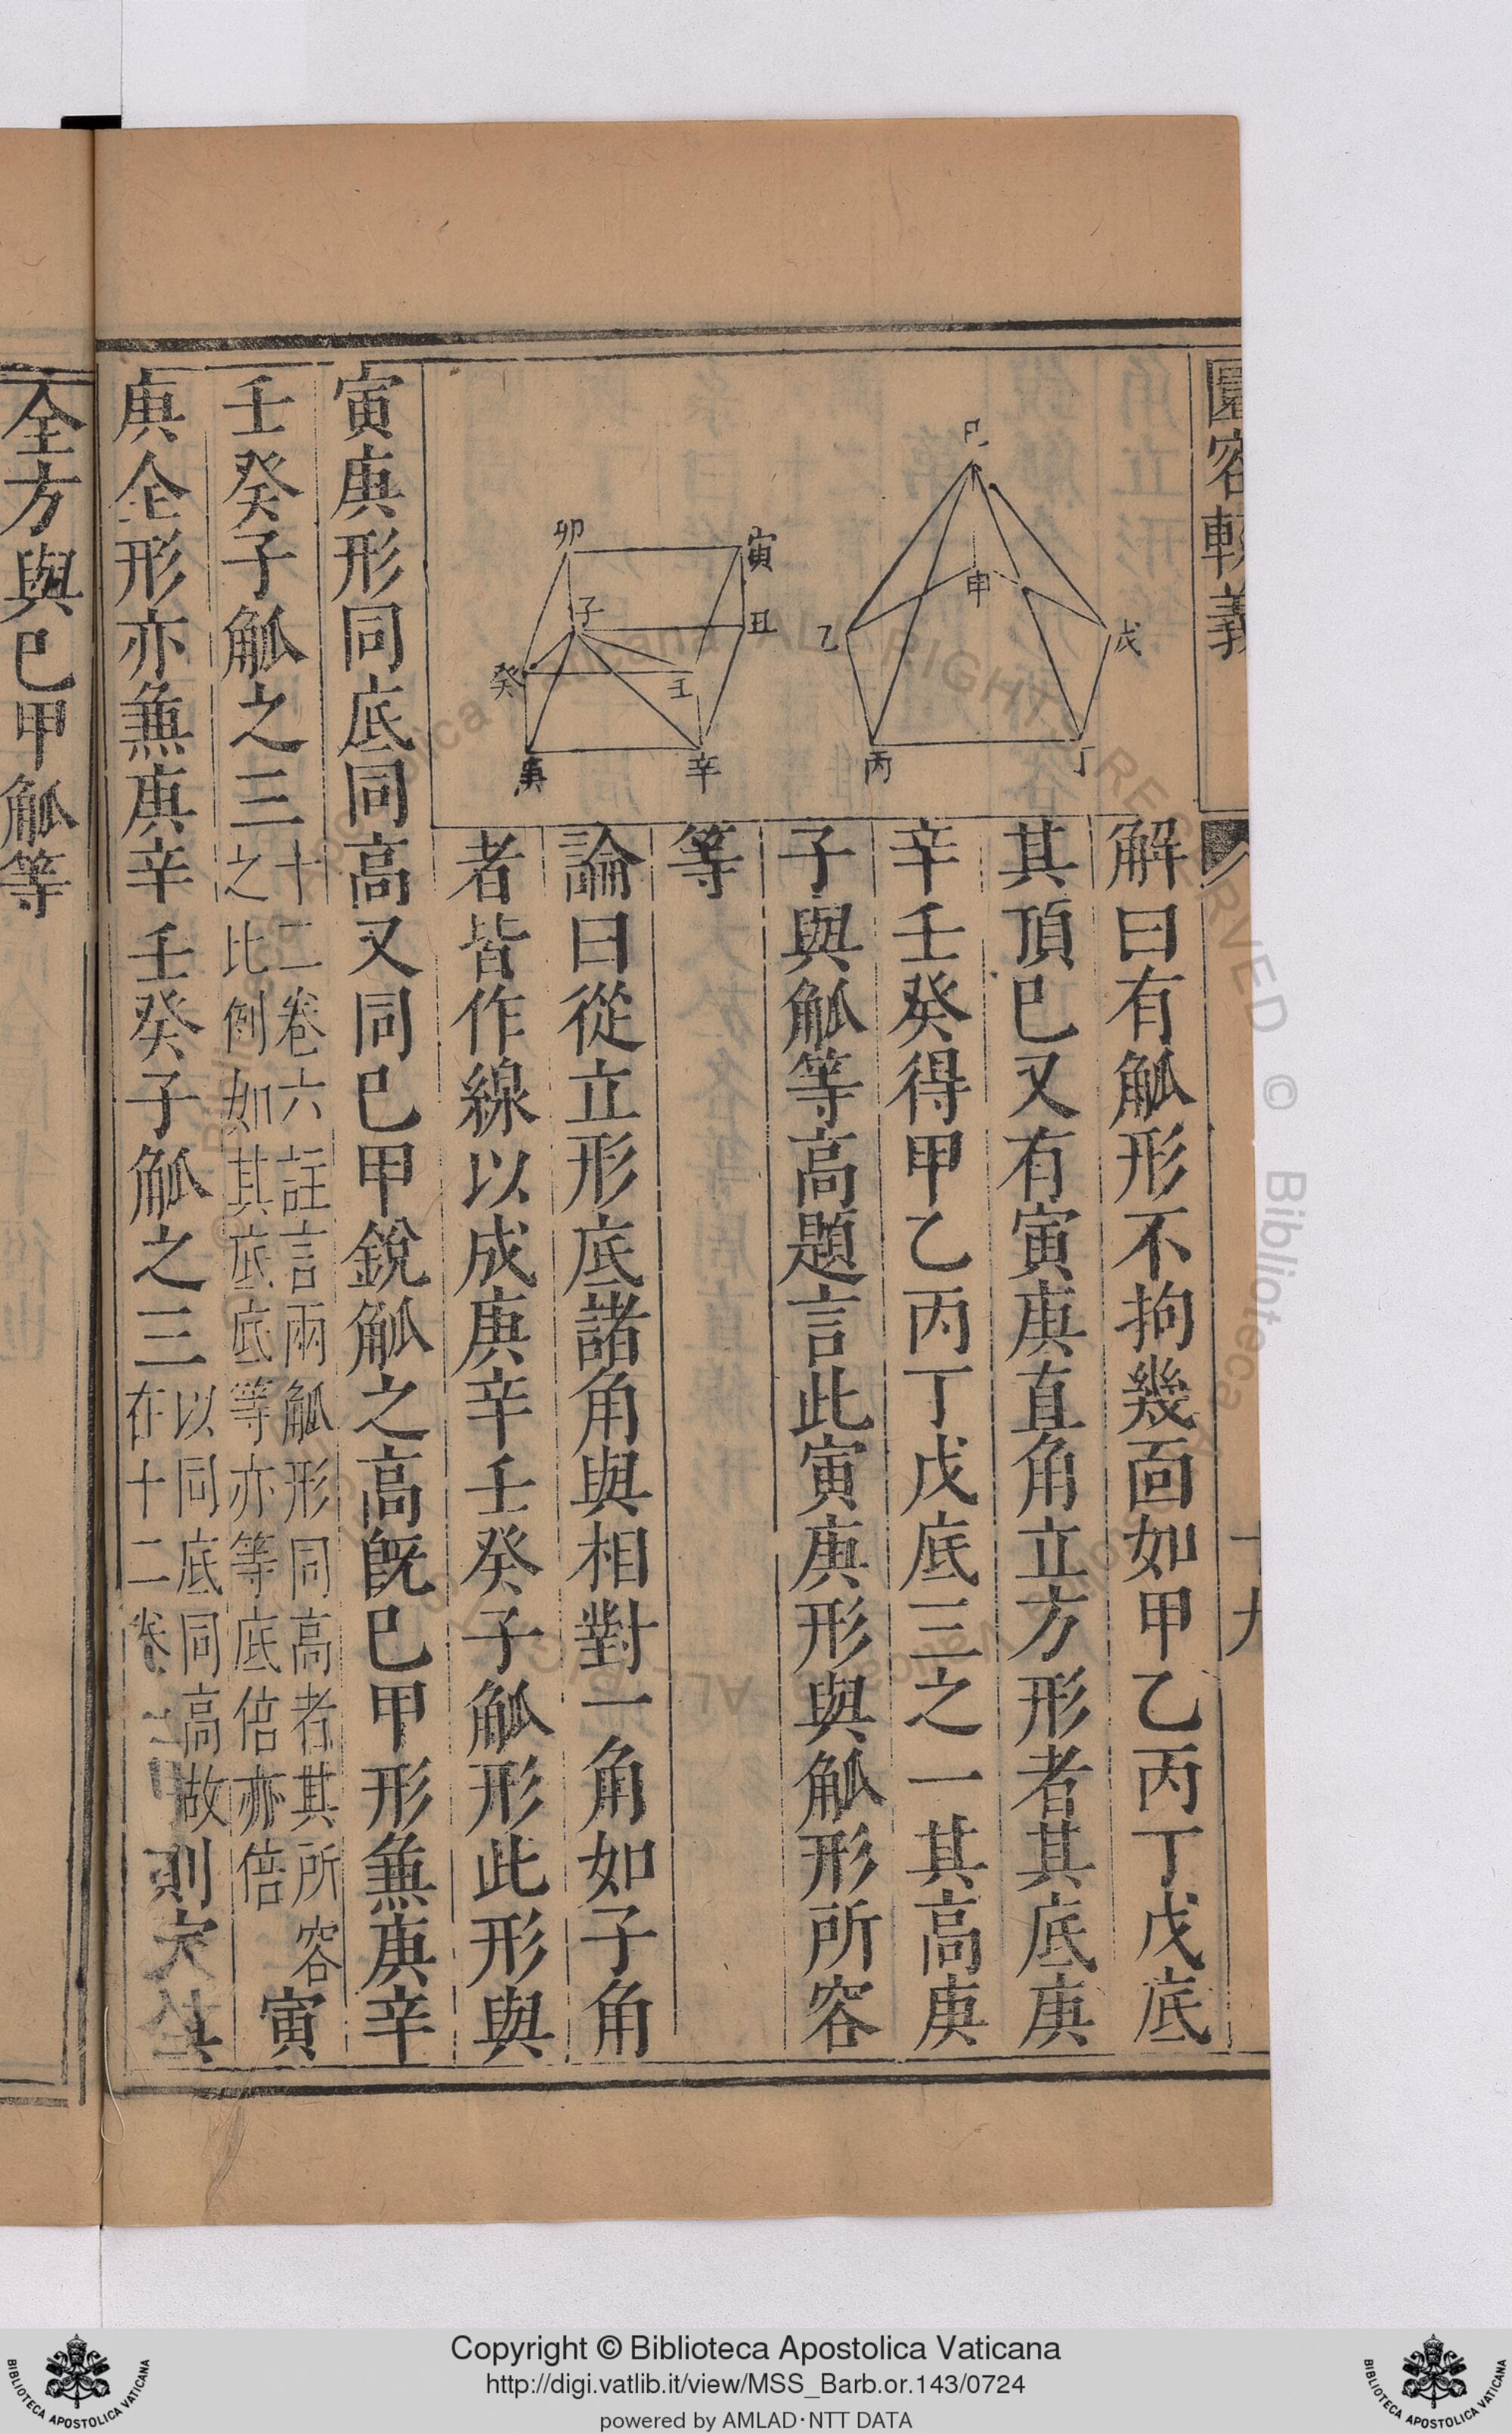 圜容較義
十九
解曰有觚形不拘幾面如甲乙丙丁戊底
其頂巳又有寅庚直角立方形者其底庚
辛壬癸得甲乙丙丁戊底三之一其高庚
子與觚等高題言此寅庚形與觚形所容
等
論曰從立形底諸角與相對一角如子角
者皆作線以成庚辛壬癸子觚形此形與
寅庚形同底同高又同巳甲銳觚之高旣巳甲形兼庚辛
壬癸子觚之三十二卷六註言兩觚形同高者其所容
之比例如其底底等亦等底倍亦倍
寅
庚仝形亦兼庚辛壬癸子觚之三以同底同高故
在十二卷
則
全方與巳甲觚等
戊
申
乙
丙
丁
卯
寅
子
丑
癸
壬
庚
辛
Copyright © Biblioteca Apostolica Vaticana
http://digi.vatlib.it/view/MSS_Barb.or.143/0724
powered by AMLAD·NTT DATA
BIBLIOTECA APOSTOLICA VATICANA
BIBLIOTECA APOSTOLICA VATICANA